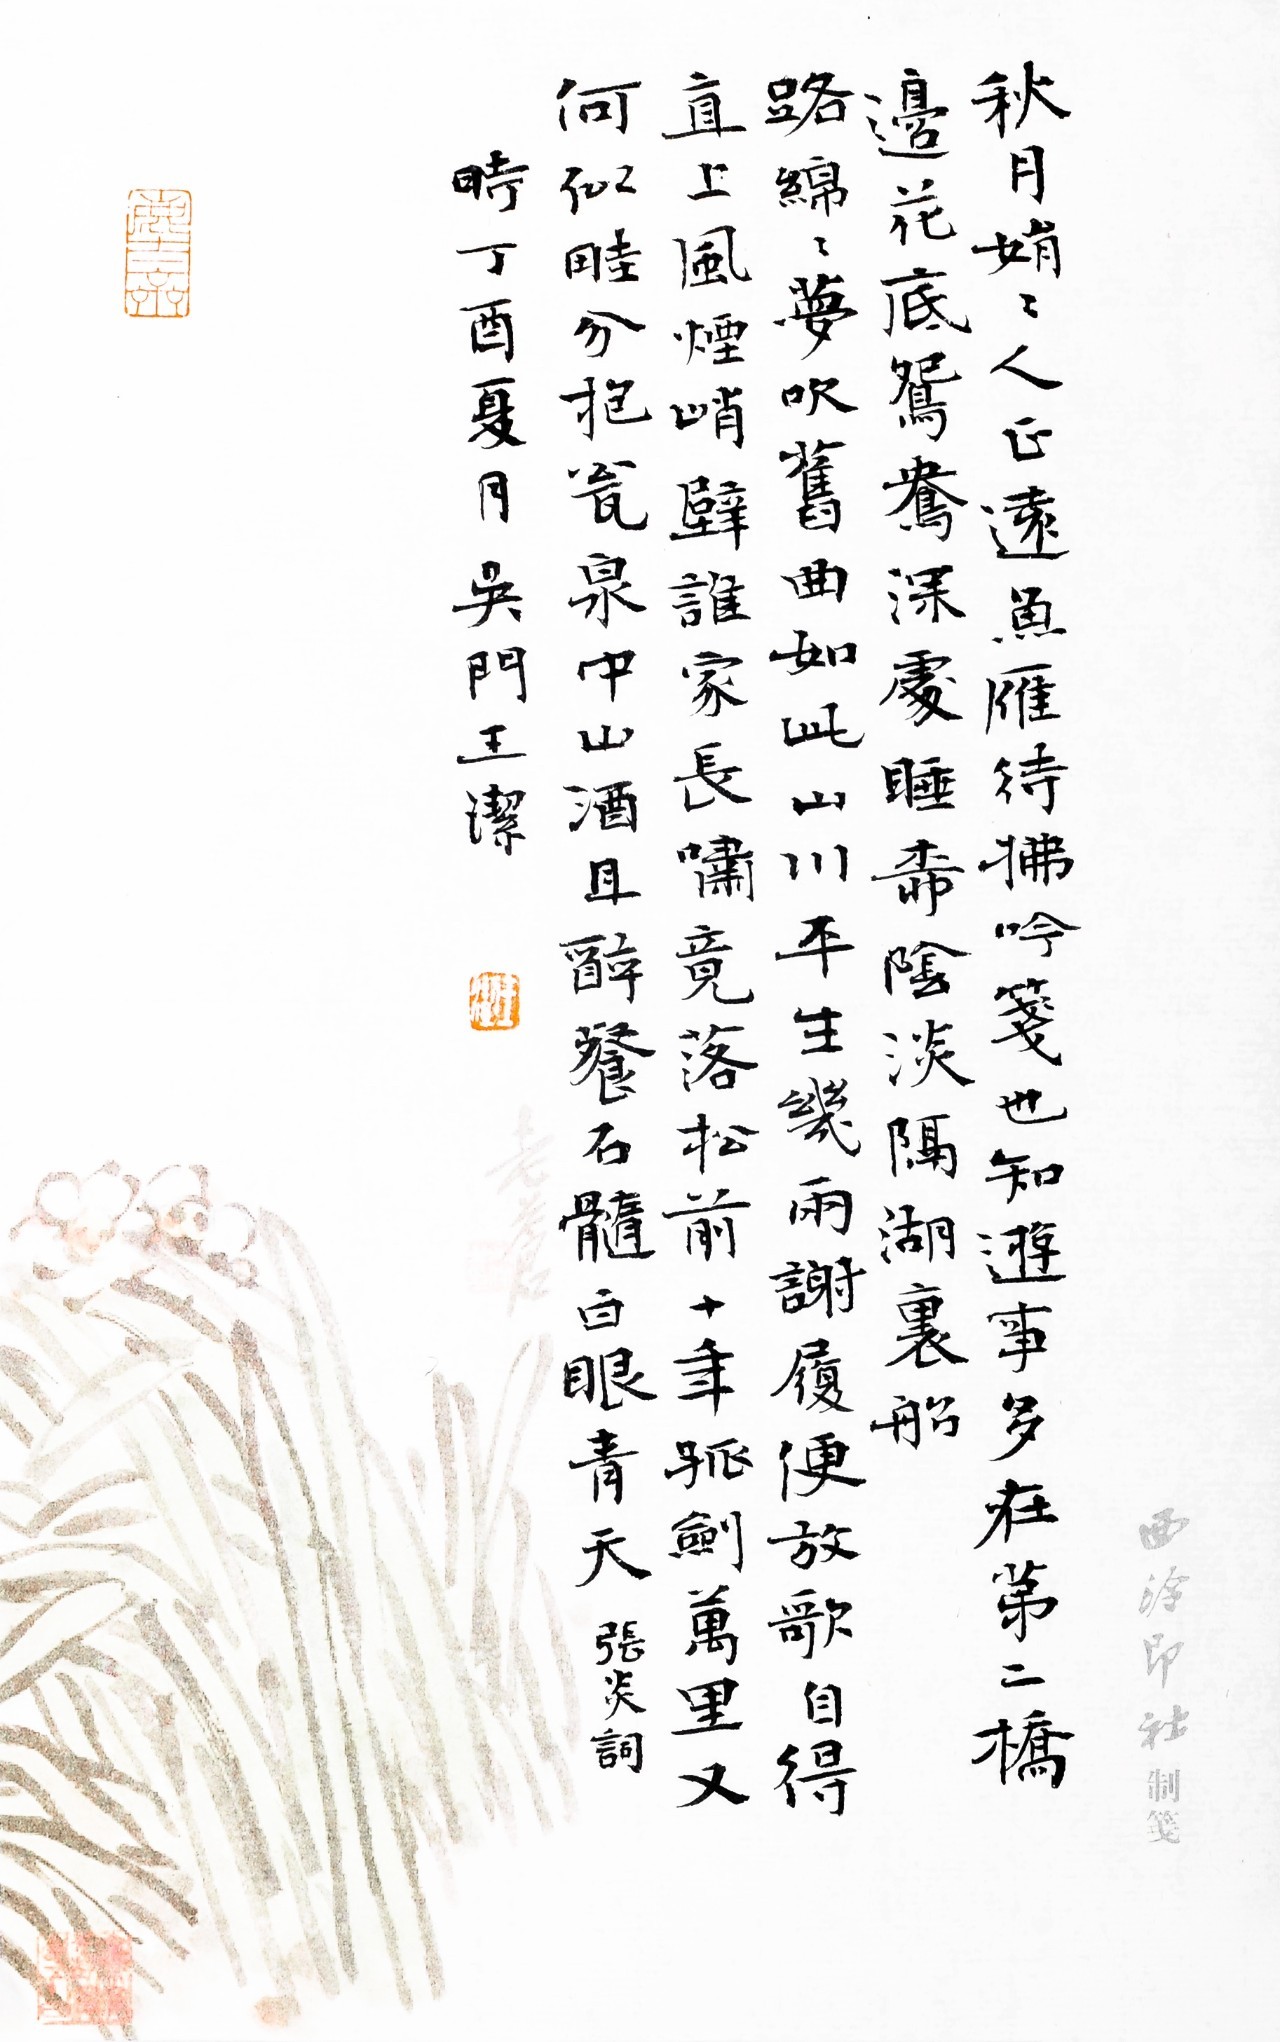 秋月娟〻人正遠魚雁待拂吟箋也知遊事多在第二橋
邊花底鴛鴦深處睡柰陰淡隔湖裏船
路綿〻夢吹舊曲如此山川平生幾兩謝屐便放歌自得
直上風煙峭壁誰家長嘯竟落松前十年孤劍萬里又
何似畦分抱瓮泉中山酒且醉餐石髓白眼青天
張炎詞
時丁酉夏月吳門王潔
西泠印社制箋